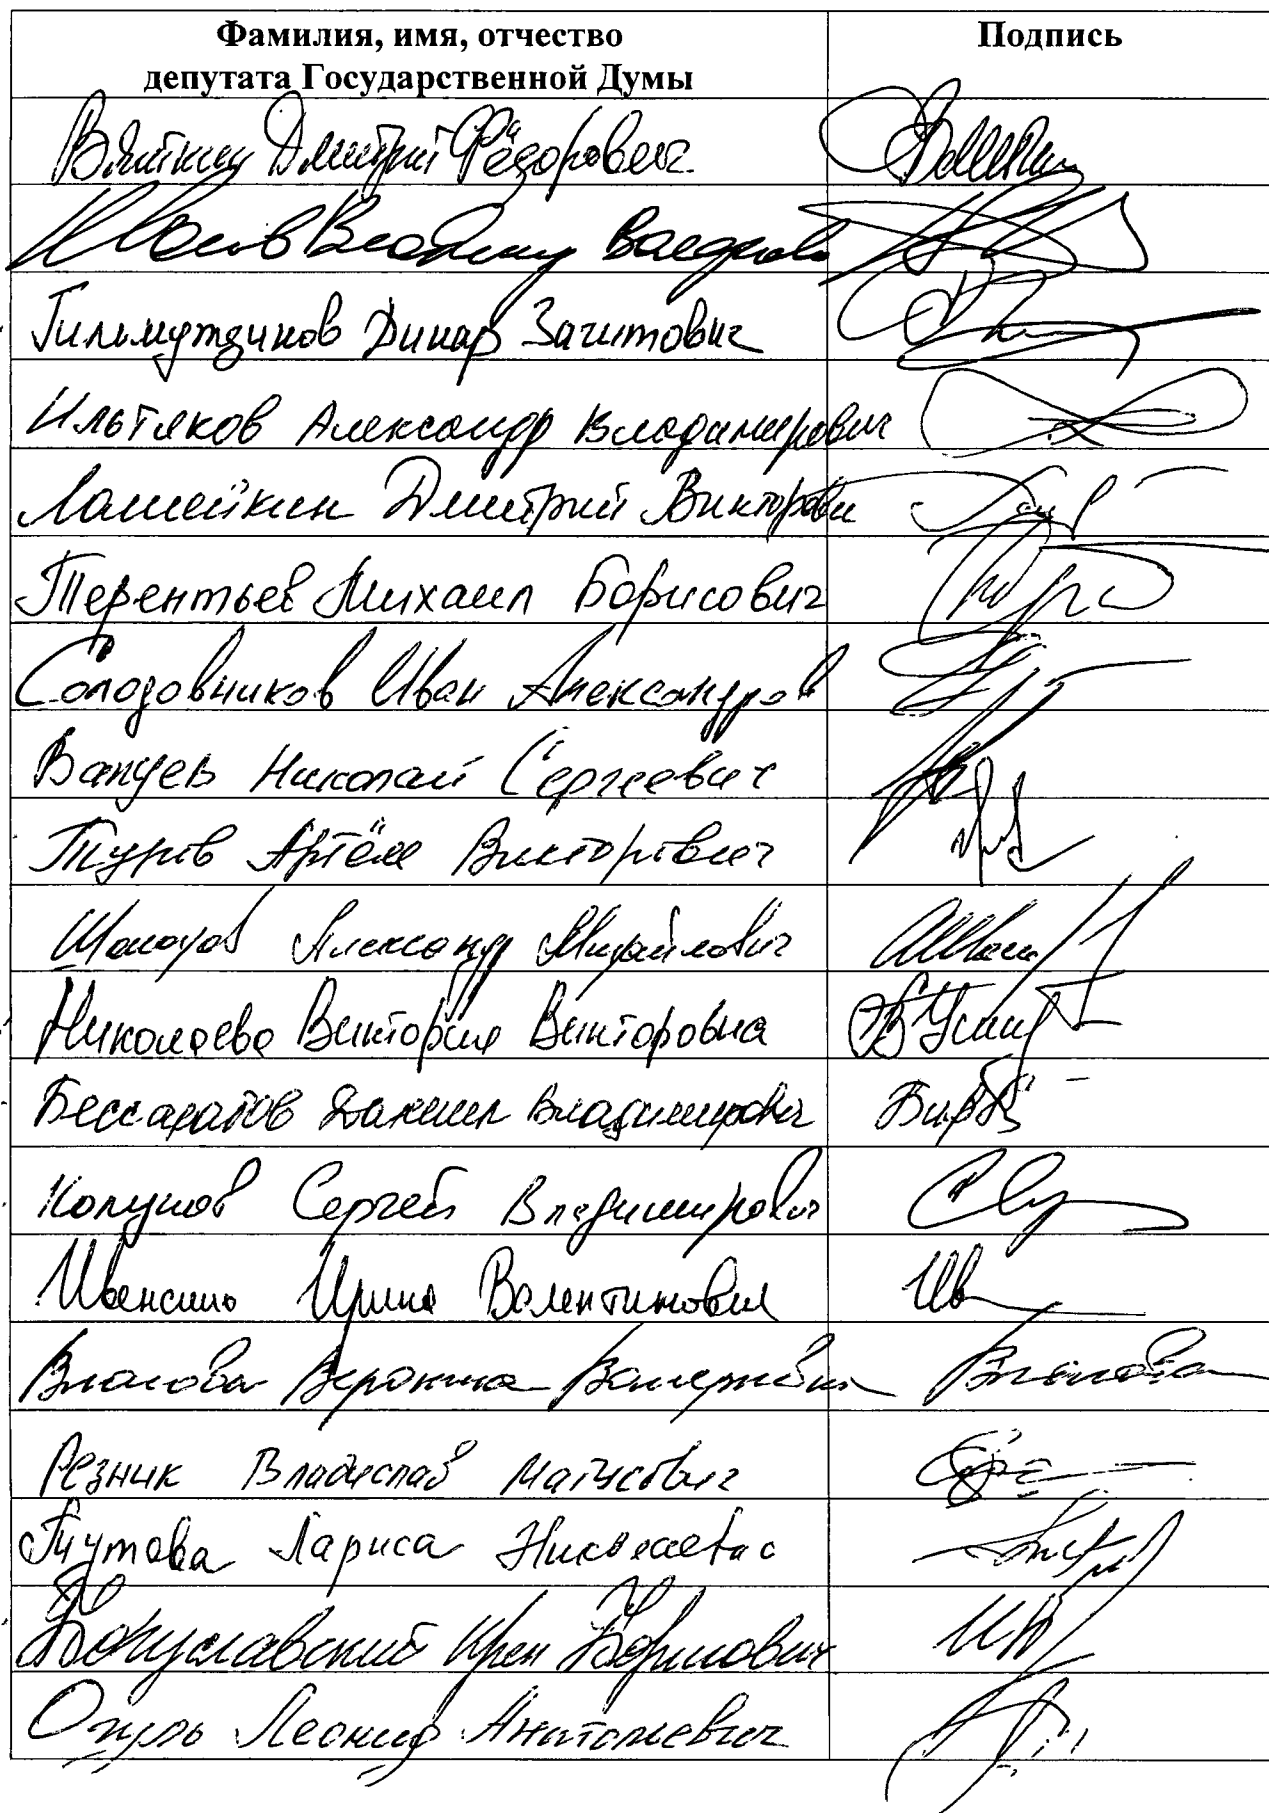 Фамилия, имя, отчество
депутата Государственной Думы
Подпись
Вяткин Дмитрий Фёдорович
Гильмутдинов Динар Загитович
Ильтяков Александр Владимирович
Ламейкин Дмитрий Викторови
Терентьев Михаил Борисович
Солодовников Иван Александров
Валуев Николай Сергеевич
Туров Артём Викторович
Шолохов Александр Михайлович
Николаева Виктория Викторовна
Бессарабов Даниил Владимирович
Колунов Сергей Владимирович
Ирина Валентиновна
Власова Вероника Валерьевна
Власова
Резник Владислав Матусович
Тутова Лариса Николаевна
Богуславский Ирек Борисович
Огуль Леонид Анатольевич